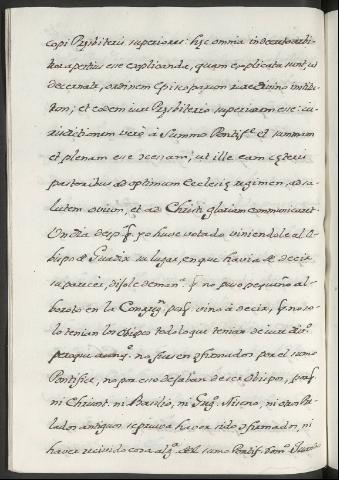 copi Presbiteris superiores: hęc omnia in decreto arbi-
tror apertius esse explicanda, quam explicata sunt, ut
decernat, ordinem Episcoporum iure Divino institu-
tum; et eodem iure Presbiterio superiorem esse: iu-
risdictionem vero à Summo Pontifᵉ. summam
et plenam esse ut ille eam cęteris
pastoribus ad optimum Ecclesię regimen, ad sa-
lutem ovium, et ad Christi gloriam communicaret.
Un dia desp. yo huve votado viniendole al O-
bispo de Guadix su lugar, en que havia de decir
su parecer, dijole de man.ᵃ no puso pequeño al-
boroto en la Congreg. vino à decir, no so-
lo tenian los Obispos todo lo que tenian de iure div.º
pero que aunq. no fuesen confirmados por el sumo
Pontifice, no por esso dejaban de ser Obispos,
ni Chrisost. ni Basilio, ni Greg. Niseno, ni otros Pre-
lados antiguos se prueva haver sido confirmados, ni
haver recivido cosa alg.ª del sumo Pontif.